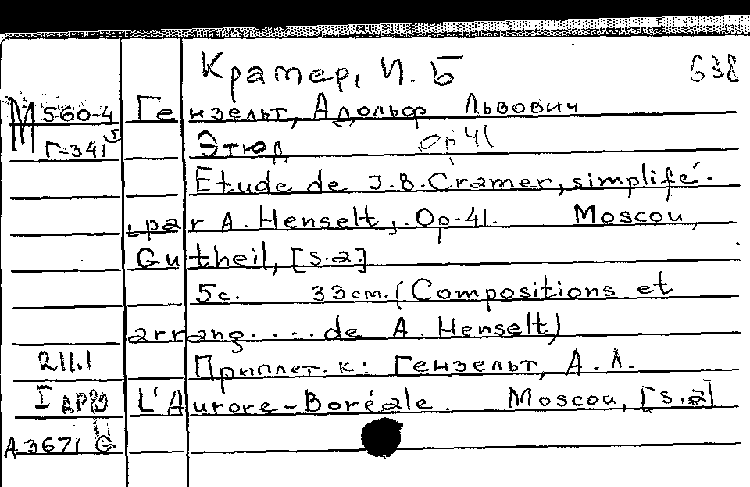 Крамер, И. Б 638
М 560-4 Гензельт, Адольф Львович
Г-341 Этюд Op 41
Etude de J.B. Cramer, simplifé.
par A. Henselt, Op-41. Moscou,
Gutheil, [s.a]
5с. 33cm. (Compositions et
arrang.... de A. Henselt)
211.1 Приплет. к: Гензельт, А. Л.
L'Aurore-Boréale. Moscou, [s.a]
А 3671